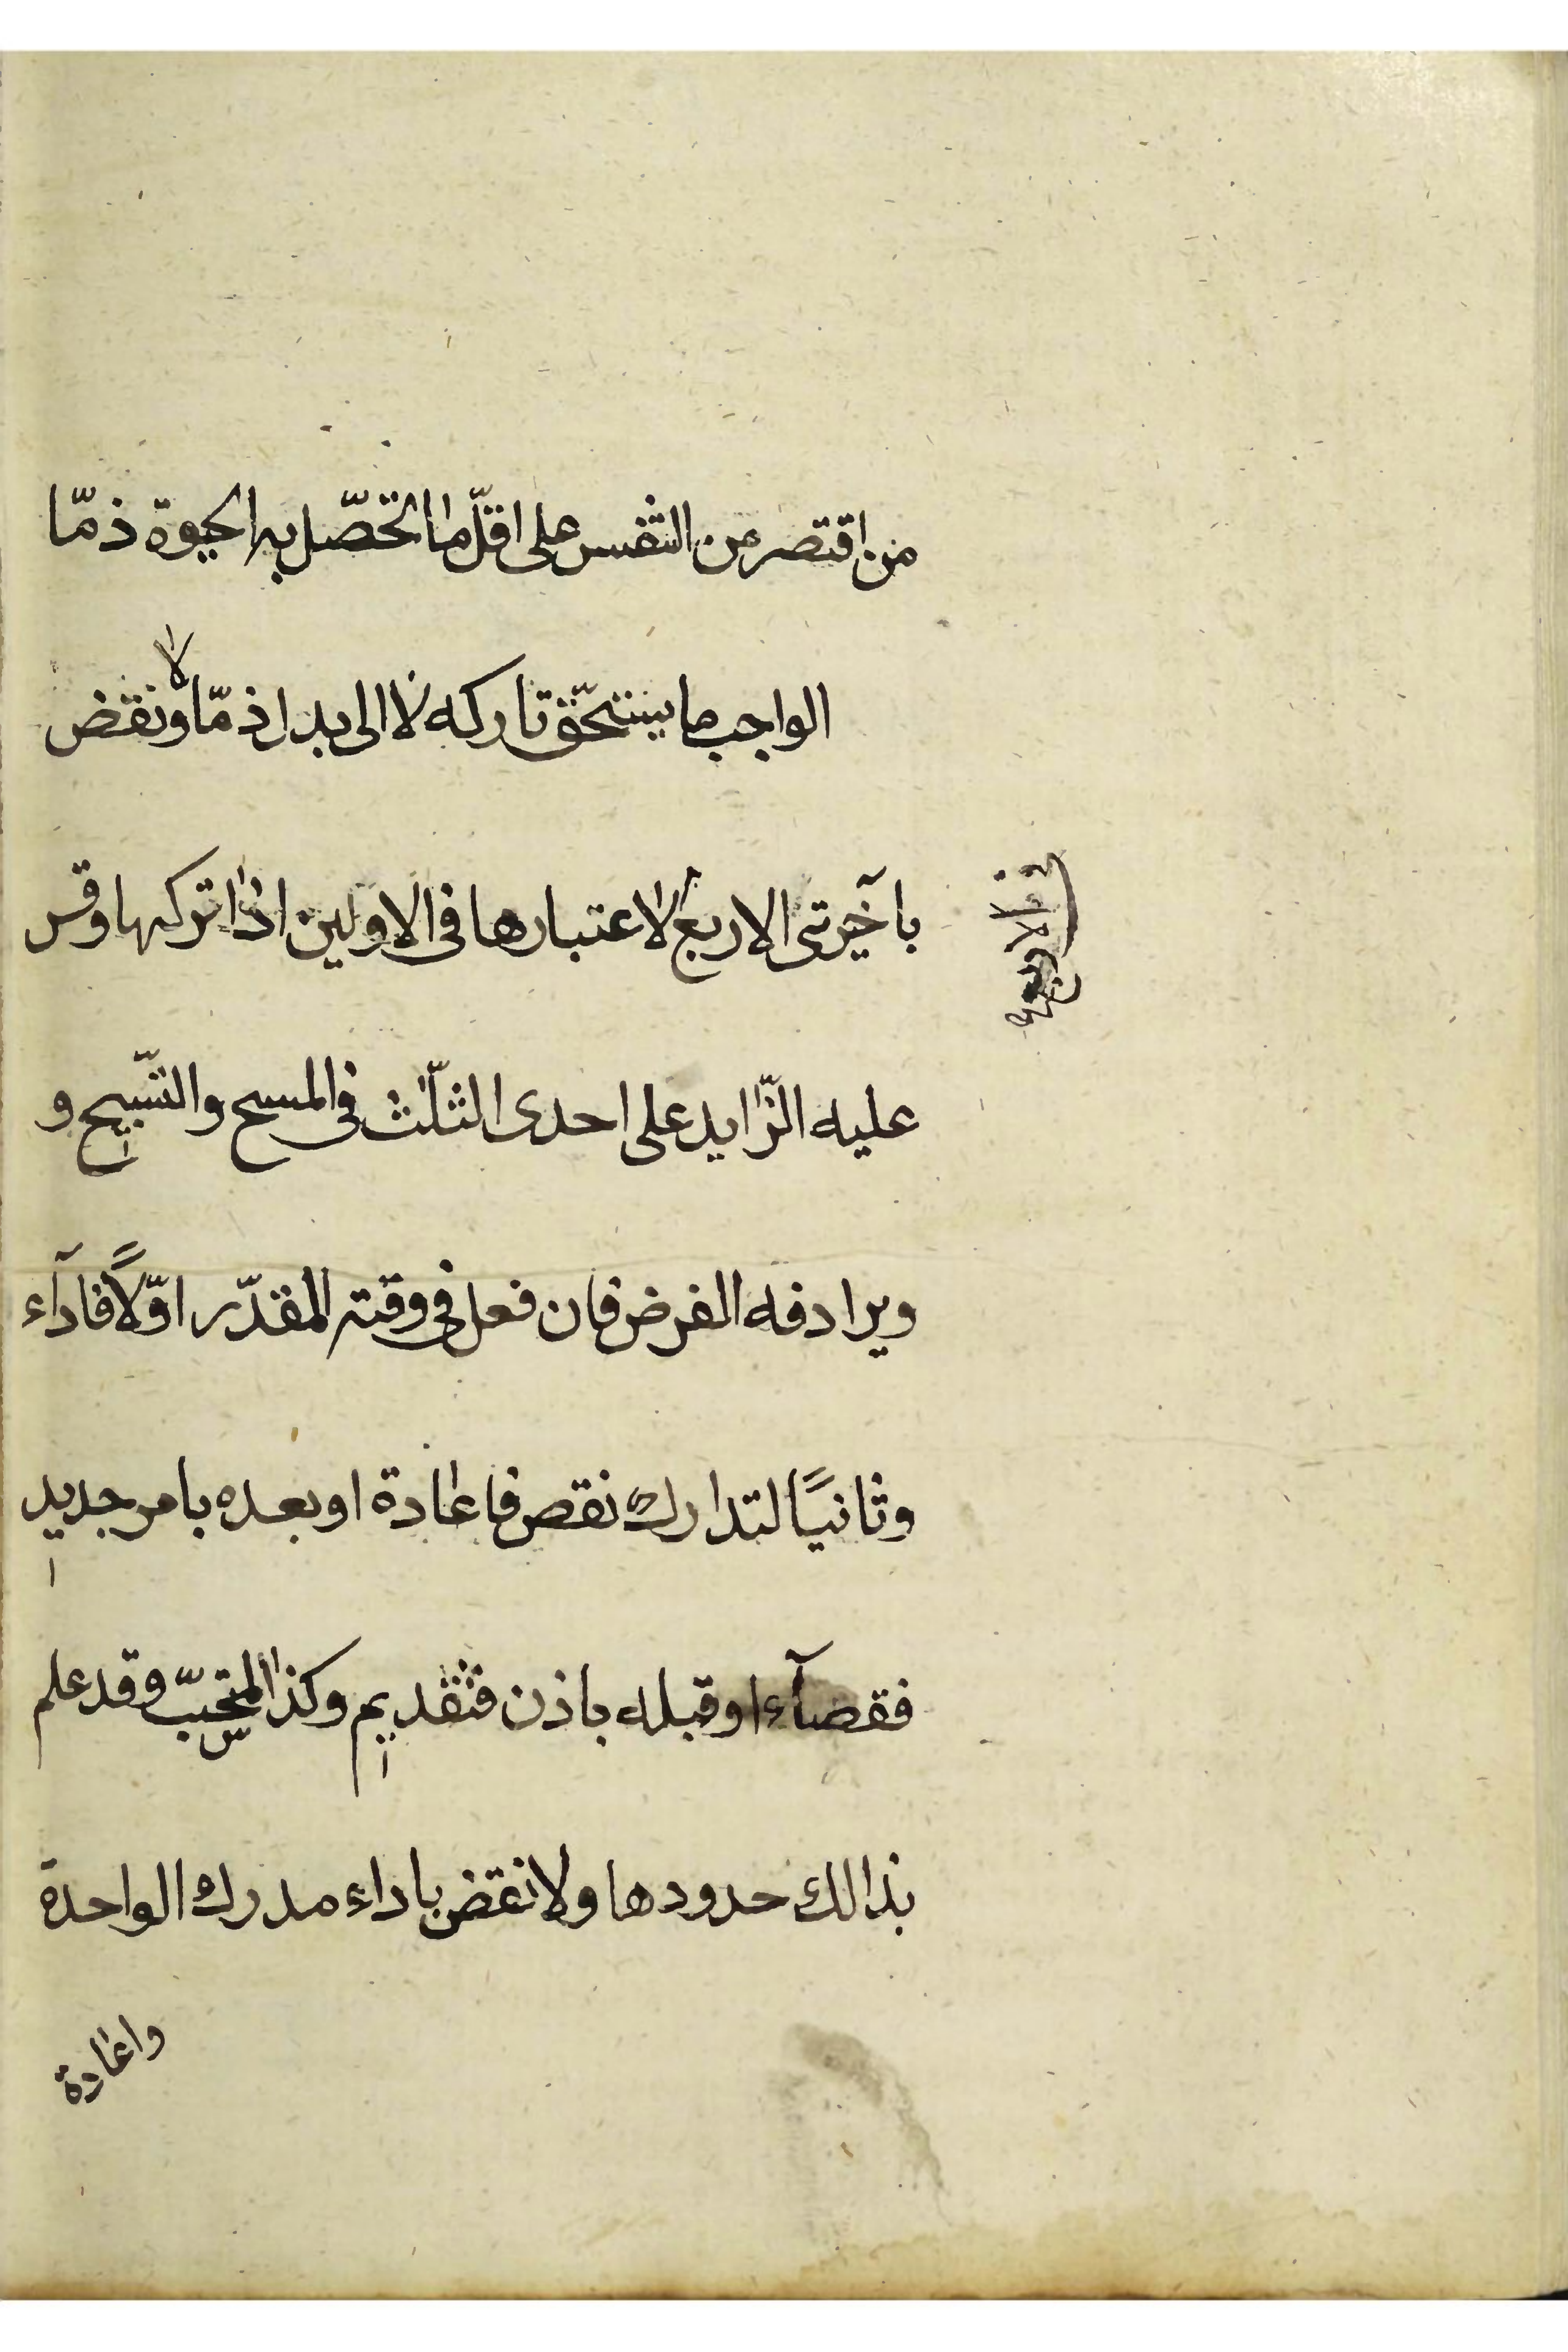 من اقتصر من التنفس على اقلّ ما اتحصّل به الحيوة ذمّا
الواجب ما يستحقّ تاركه لا الى بدل ذمّا ولا نقض
باخيرتى الاربع لاعتبارها فى الاولين اذا تركها وقس
عليه الزّايد على احدى الثلّث فى المسح والتسّبيح و
ويرادفه الفرض فان فعل فى وقته المقدّر اوّلاً فاداء
وثانيًا لتدارك نقص فاعادة او بعده بامر جديد
فقضآء او قبله باذن فتقديم وكذا المستحبّ وقد علم
بذالك حدودها ولا نقض باداء مدرك الواحدة
واعادة